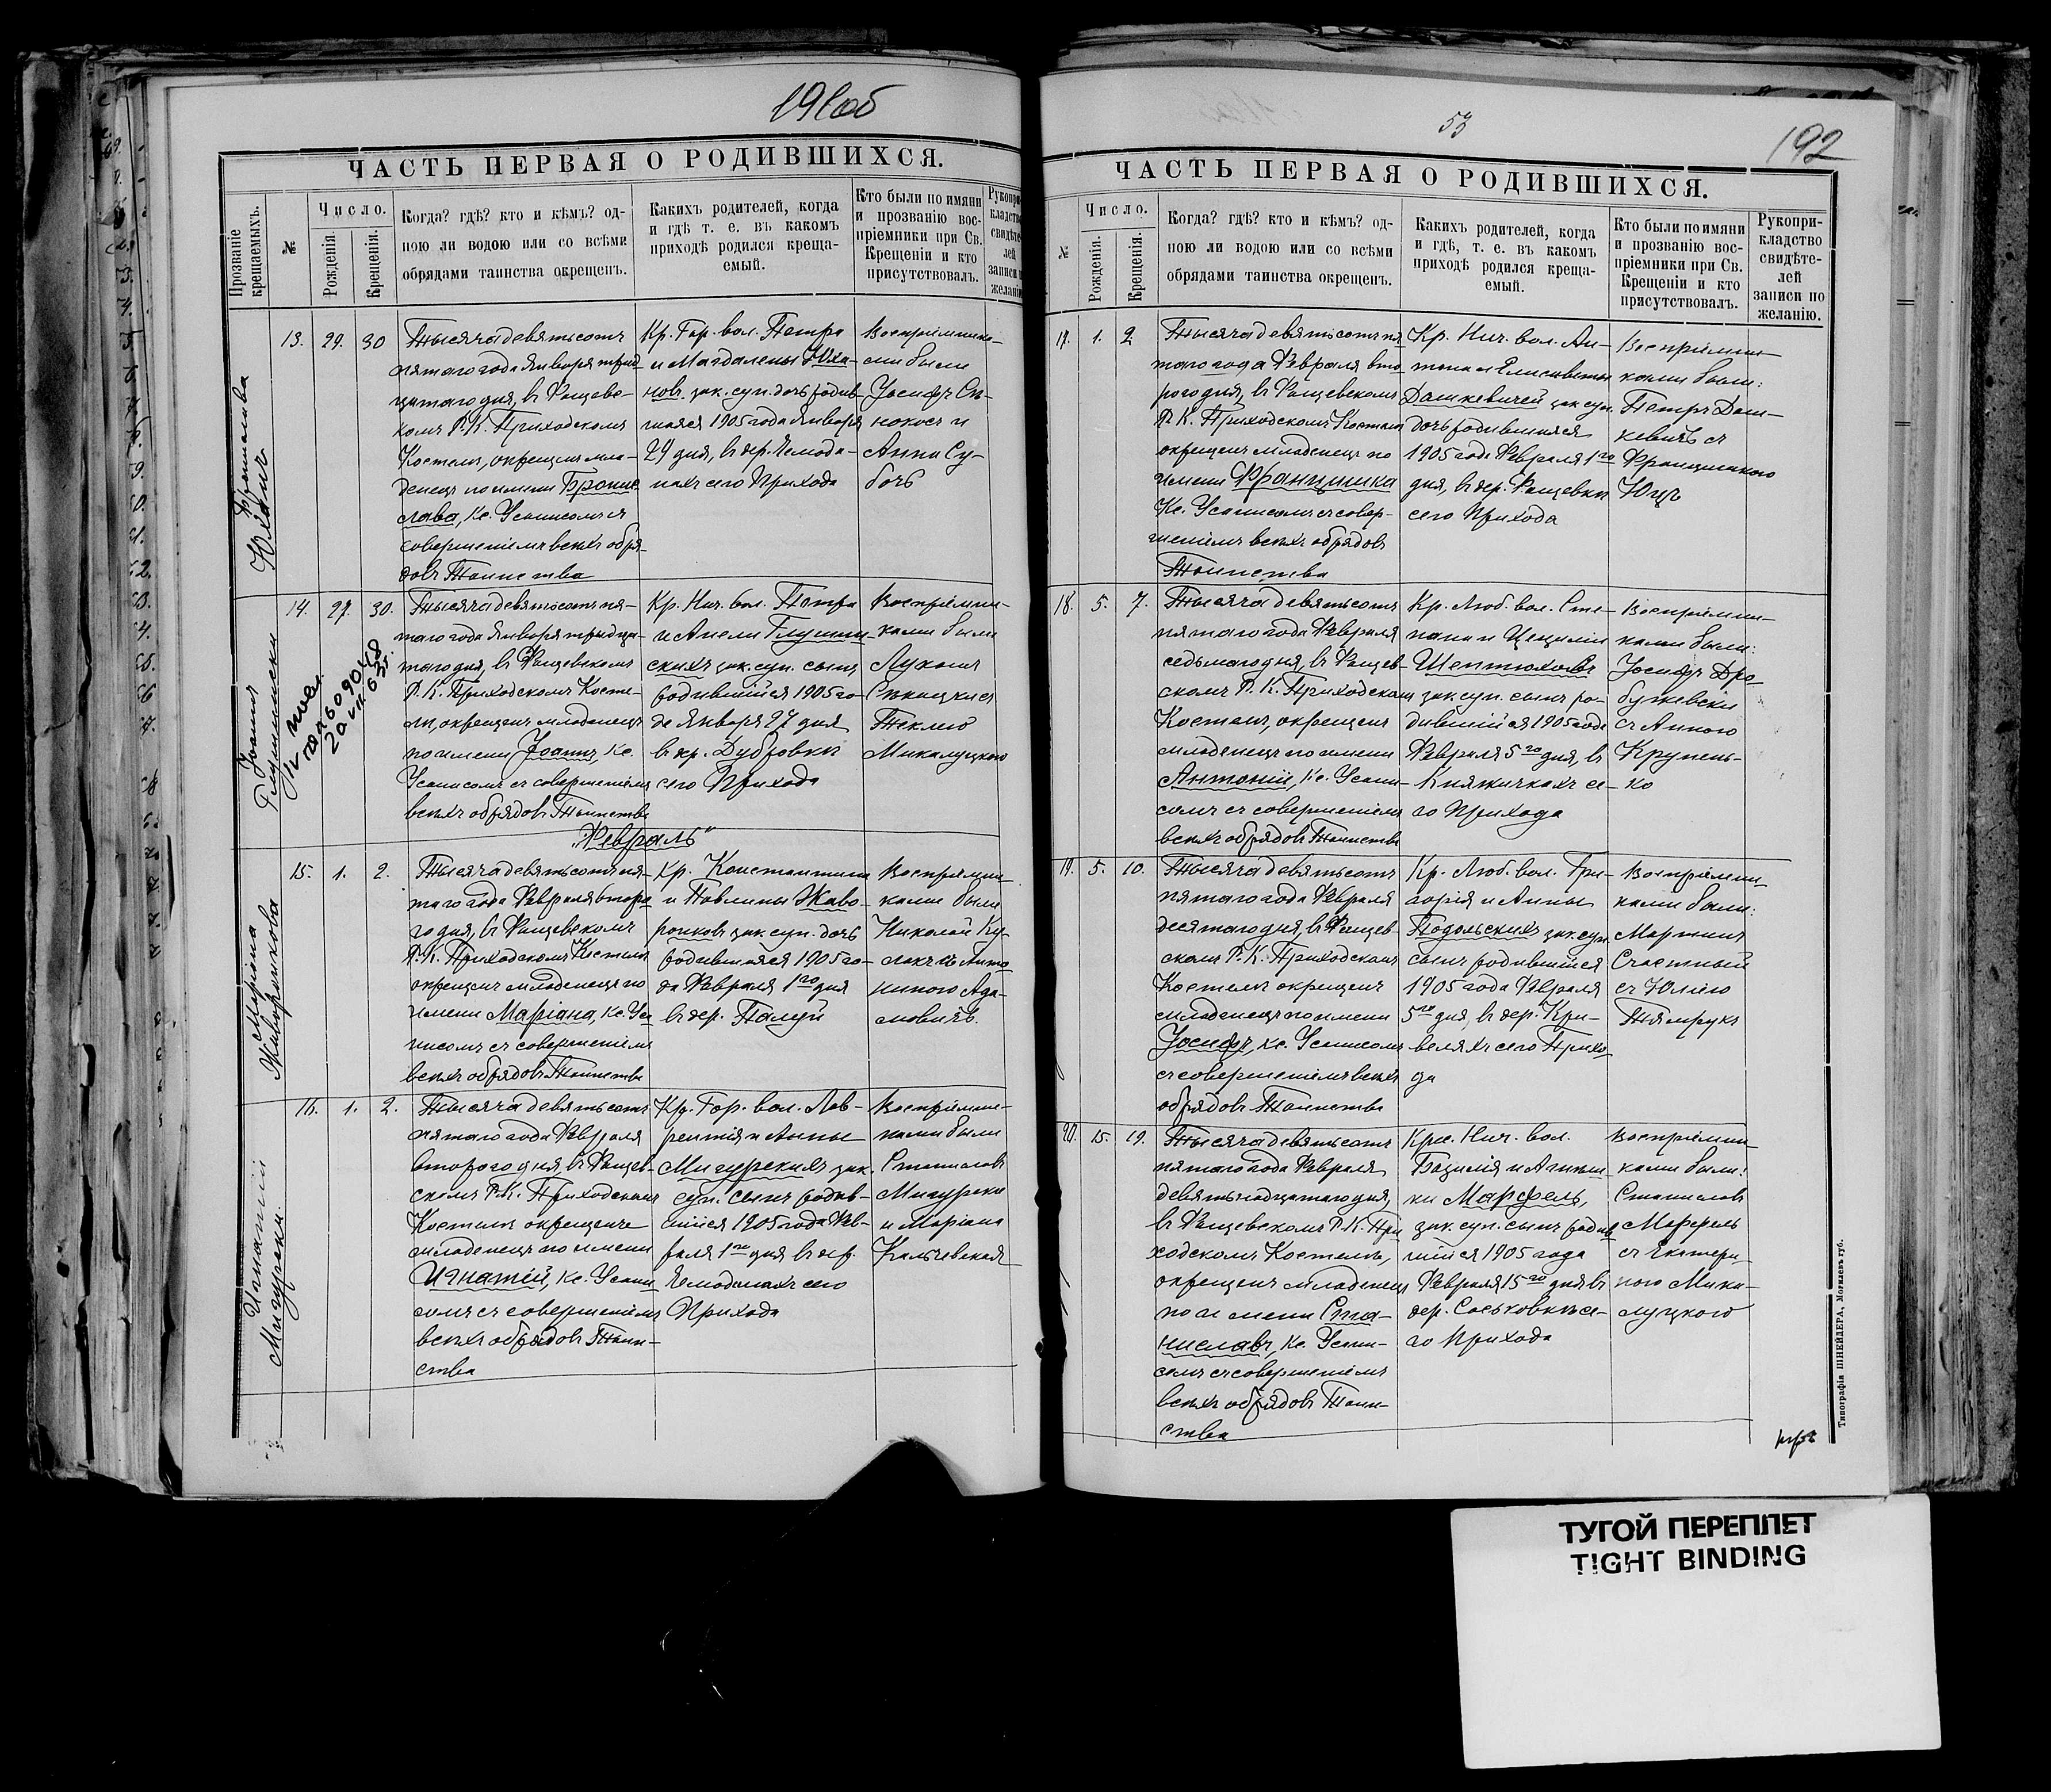 191об
ЧАСТЬ ПЕРВАЯ О РОДИВШИХСЯ.
Прозваніе крещаемыхъ.
№
Число.
Рожденія.
Крещенія.
Когда? гдѣ? кто и кѣмъ? од-
ною ли водою или со всѣми
обрядами таинства окрещенъ.
Какихъ родителей, когда
и гдѣ т. е. въ какомъ
приходѣ родился креща-
емый.
Кто были по имяни
и прозванію вос-
пріемники при Св.
Крещеніи и кто
присутствовалъ.
Рукопри-
кладство
свидѣте-
лей
записи п
желанію
Юханъ
13. 29. 30
Тысяча девятьсотъ
пятаго года Января трид-
цатаго дня, въ Фащевс-
комъ Р. К. Приходскомъ
Костелѣ, окрещенъ мла-
денецъ по имени Брони-
слава, Кс. Усписомъ съ
совершеніемъ всѣхъ обря-
довъ Таинства
Кр. Гор. вол. Петра
и Магдалены Юха-
новъ зак. суп. дочь родив-
шаяся 1905 года Января
29 дня, въ дер.
нахъ сего Прихода
Воспріемника-
ми были
Іосифъ Си-
нокосъ и
Анна Су-
бочь
Іоаннъ
Глушински
20 VII 63г.
14. 27. 30.
Тысяча девятьсотъ пя-
таго года Января тридца-
таго дня, въ Фащевскомъ
Р. К. Приходскомъ Косте-
лѣ, окрещенъ младенецъ
по имени Іоаннъ, Кс.
Усписомъ съ совершеніемъ
всѣхъ обрядовъ Таинства
Кр. Нич. вол. Петра
и Анели Глушин-
скихъ зак. суп. сынъ,
родившійся 1905 го-
да Января 27 дня
въ кр. Дубровки
сего Прихода
Воспріемни-
ками были
Лукашъ
Теклею
Микалуцкою
„Февраль"
Маріана
Жаворонкова
15. 1. 2.
Тысяча девятьсотъ пя-
таго года Февраля второ-
го дня, въ Фащевскомъ
Р. К. Приходскомъ Костелѣ
окрещенъ младенецъ по
имени Маріана, Кс. Ус-
писомъ съ совершеніемъ
всѣхъ обрядовъ Таинства
Кр. Константина
и Павлины Жаво-
ронковъ зак. суп. дочь
родившаяся 1905 го-
да Февраля 1го дня
въ дер. Палуй
Воспріемни-
ками были
Николай Ку-
лакъ съ Анто-
ниною Ада-
мовичъ.
Игнатій
Мигурски.
16. 1. 2.
Тысяча девятьсотъ
пятаго года Февраля
второго дня, въ Фащев-
скомъ Р. К. Приходскомъ
Костелѣ окрещенъ
младенецъ по имени
Игнатій, Кс. Успи-
сомъ съ совершеніемъ
всѣхъ обрядовъ Таин-
ства
Кр. Гор. вол. Лав-
рентія и Анны
Мигурскихъ зак.
суп. сынъ родив-
шійся 1905 года Фев-
раля 1го дня въ дер.
сего
Прихода
Воспріемни-
ками были
Станиславъ
Мигурски
и Маріана
Кальчевская
53
192
ЧАСТЬ ПЕРВАЯ О РОДИВШИХСЯ.
№
Число.
Рожденія.
Крещенія.
Когда? гдѣ? кто и кѣмъ? од-
ною ли водою или со всѣми
обрядами таинства окрещенъ.
Какихъ родителей, когда
и гдѣ, т. е. въ какомъ
приходѣ родился креща-
емый.
Кто были по имяни
и прозванію вос-
пріемники при Св.
Крещеніи и кто
присутствовалъ.
Рукопри-
кладство
свидѣте-
лей
записи по
желанію.
17. 1. 2
Тысяча девятьсотъ пя-
таго года Февраля вто-
рого дня, въ Фащевскомъ
Р. К. Приходскомъ Костелѣ
окрещенъ младенецъ по
имени Францишка
Кс. Усписомъ съ совер-
шеніемъ всѣхъ обрядовъ
Таинства
Кр. Нич. вол. Ан-
тона и Елисаветы
Дашкевичей зак. суп.
дочь родившаяся
1905 года Февраля 1го
дня, въ дер. Фащевки
сего Прихода
Воспріемни-
ками были:
Петръ Даш-
кевичъ съ
Францишкою
Юцъ
18. 5. 7.
Тысяча девятьсотъ
пятаго года Февраля
седьмаго дня, въ Фащев-
скомъ Р. К. Приходскомъ
Костелѣ, окрещенъ
младенецъ по имени
Антоній, Кс. Успи-
сомъ съ совершеніемъ
всѣхъ обрядовъ Таинства
Кр. Люб. вол. Сте-
пана и Цециліи
Шептюховъ
зак. суп. сынъ ро-
дившійся 1905 года
Февраля 5го дня, въ
Княжичкахъ се-
го Прихода
Воспріемни-
ками были:
Іосифъ Дро-
бужевски
съ Анною
Крупень-
ко
19. 5. 10.
Тысяча девятьсотъ
пятаго года Февраля
десятаго дня, въ Фащев-
скомъ Р. К. Приходскомъ
Костелѣ окрещенъ
младенецъ по имени
Іосифъ, Кс. Усписомъ
съ совершеніемъ всѣхъ
обрядовъ Таинства
Кр. Люб. вол. Гри-
горія и Анны
Подольскихъ зак. суп.
сынъ родившійся
1905 года Февраля
5го дня, въ дер. Кри-
веляхъ сего Прихо-
да
Воспріемни-
ками были:
Мартинъ
Счастный
съ Юліею
20. 15. 19.
Тысяча девятьсотъ
пятаго года Февраля
девятнадцатаго дня,
въ Фащевскомъ Р. К. При-
ходскомъ Костелѣ,
окрещенъ младенецъ
по имени Ста-
ниславъ, Кс. Успи-
сомъ съ совершеніемъ
всѣхъ обрядовъ Таин-
ства
Крс. Нич. вол.
Базилія и Агнеш-
ки Марфель,
зак. суп. сынъ родив-
шійся 1905 года
Февраля 15го дня въ
дер. Саськовки се-
го Прихода
Воспріемни-
ками были:
Станиславъ
Марфель
съ Екатери-
ною Мика-
луцкою
Типографія ШНЕЙДЕРА, Могилевъ губ.
ТУГОЙ ПЕРЕПЛЕТ
TIGHT BINDING